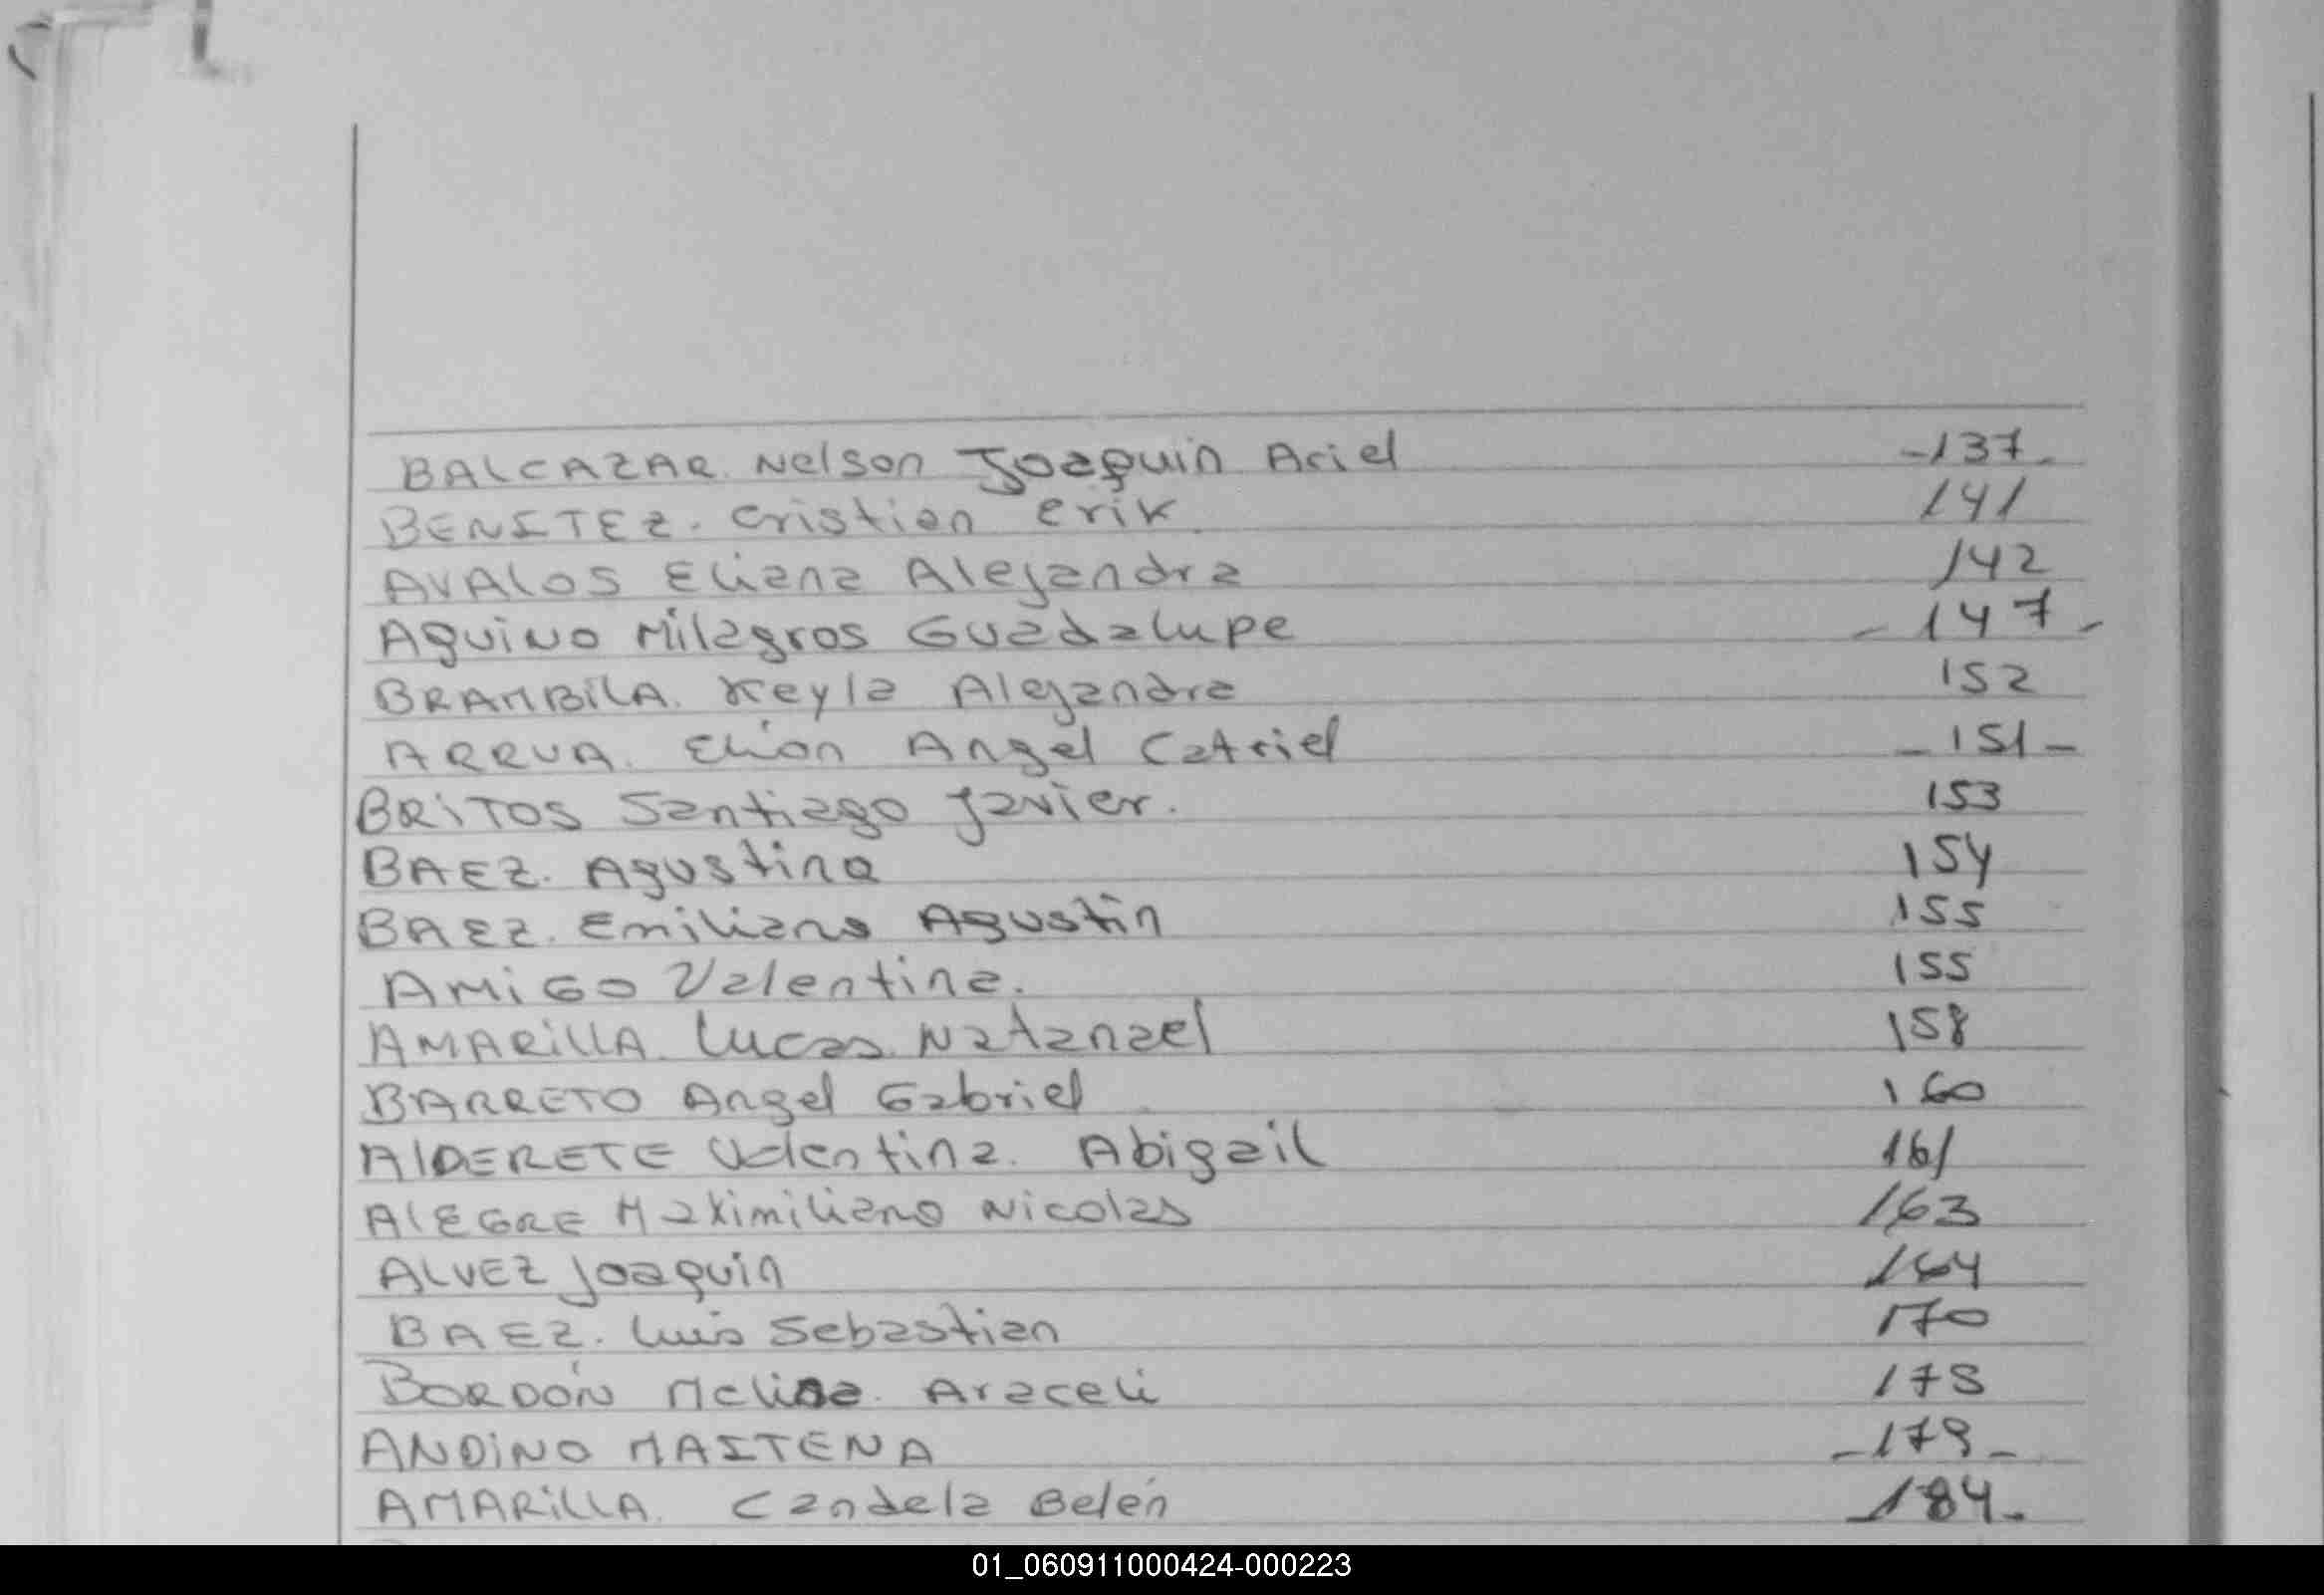 BALCAZAR. Nelson Joaquin Ariel -137-
BENITEZ. Cristian Erik 141
AVALOS Eliana Alejandra 142
AQUINO Milagros Guadalupe -147-
BRAMBILA. Keyla Alejandra 152
ARRUA. Elión Angel Catriel -151-
BRITOS Santiago Javier. 153
BAEZ. Agustina 154
BAEZ. Emiliano Agustin 155
AMIGO Valentina. 155
AMARILLA. Lucas Natanael 158
BARRETO Angel Gabriel 160
AlDERETE Valentina. Abigail 161
AlEGRE Maximiliano Nicolas 163
ALVEZ Joaquin 164
BAEZ. Luis Sebastian 170
BORDÓN Melisa. Araceli 178
ANDINO MAITENA -179-
AMARILLA. Candela Belén -184-
01_060911000424-000223